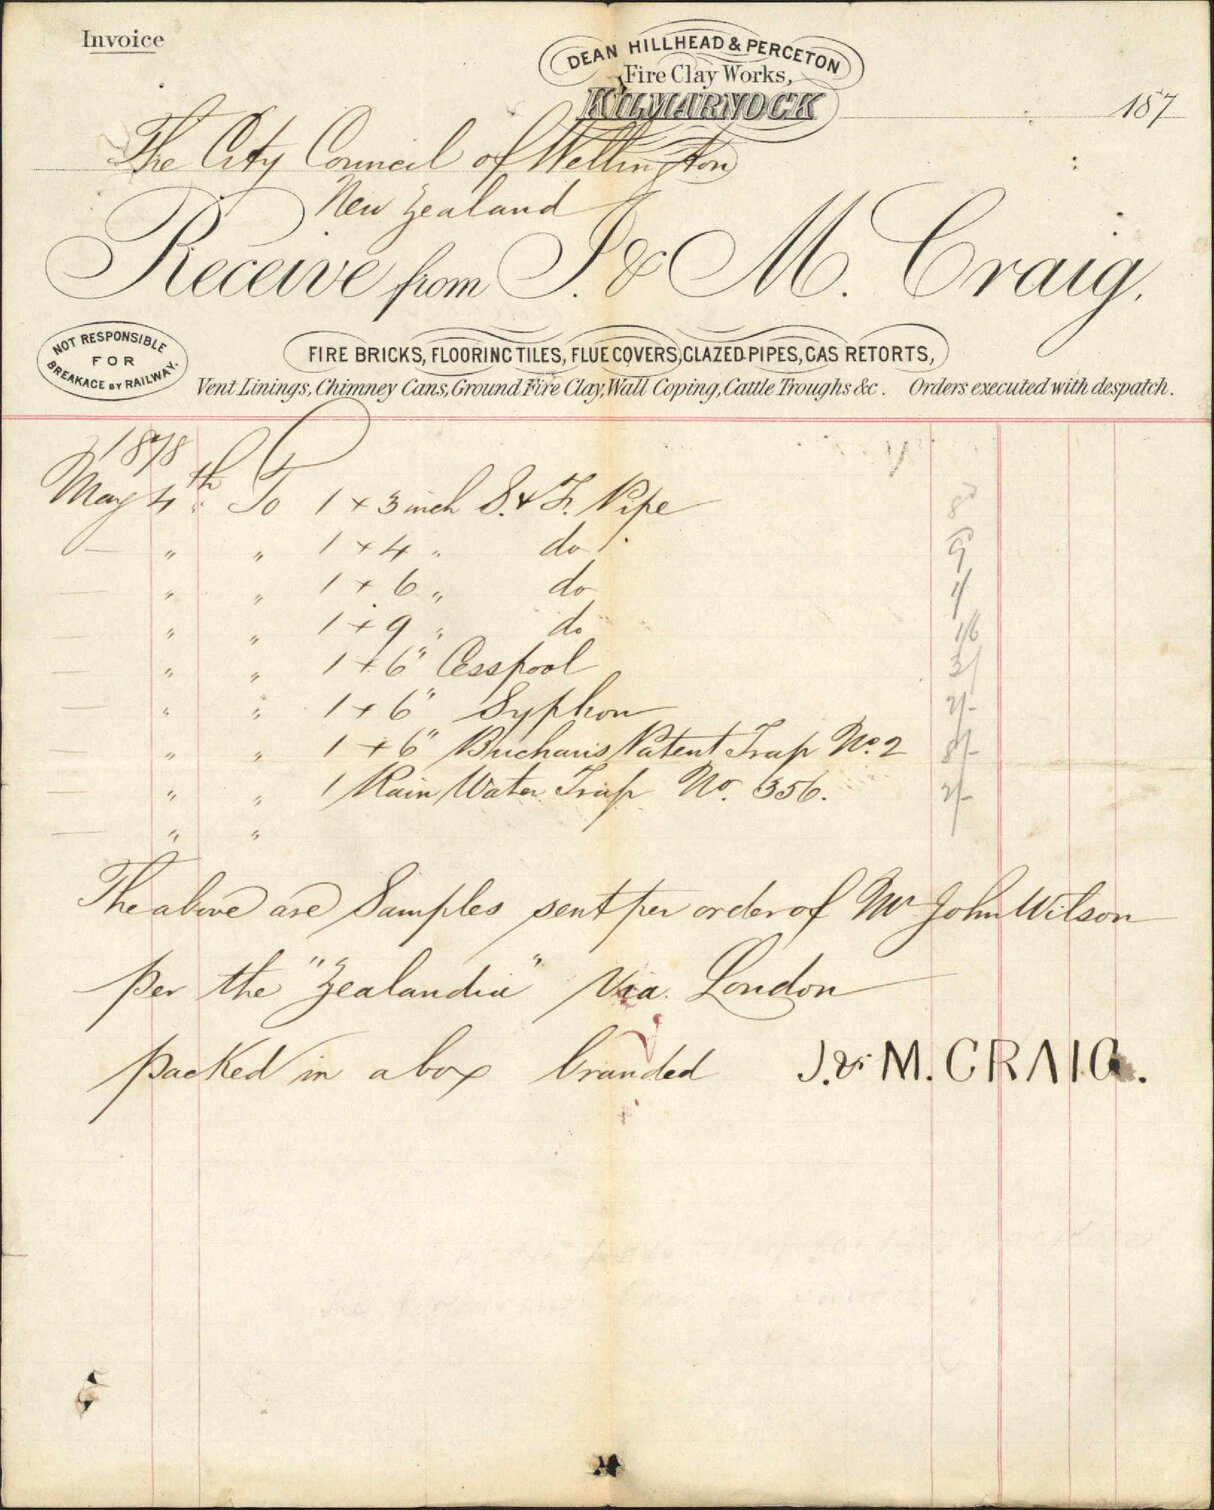 Invoice
DEAN HILLHEAD & PERCETON
Fire Clay Works,
KILMARNOCK
187
The City Council of Wellington
New Zealand
Receive from J. & M. Craig.
NOT RESPONSIBLE
FOR
BREAKAGE BY RAILWAY.
FIRE BRICKS, FLOORING TILES, FLUE COVERS, GLAZED PIPES, GAS RETORTS,
Vent Linings, Chimney Cans, Ground Fire Clay, Wall Coping, Cattle Troughs &c. Orders executed with despatch.
1878
May 4th To 1 + 3 inch S. & F. Pipe 8d
— " " 1 + 4 " do 9
— " " 1 + 6 " do 1/
— " " 1 + 9 " do 1/6
— " " 1 + 6" Cesspool 3/
— " " 1 + 6" Syphon 2/-
— " " 1 + 6" Buchans Patent Trap No. 2 8/-
— " " 1 Rain Water Trap No. 356. 2/-
— " "
The above are Samples sent per order of Mr John Wilson
per the "Zealandia" via London
packed in a box branded J. & M. CRAIG.